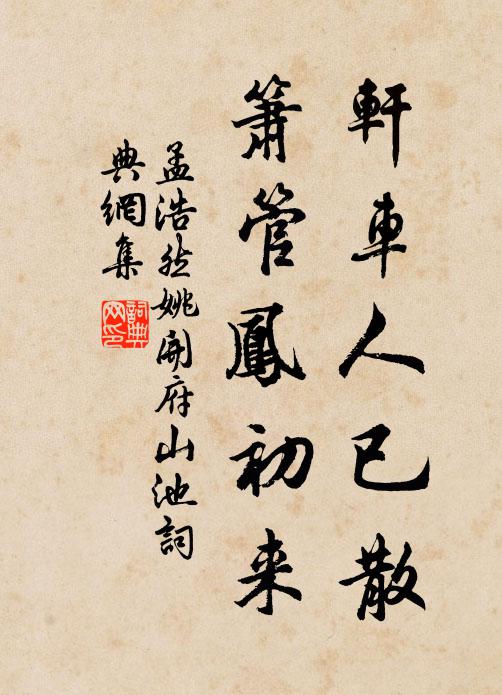 軒車人已散
簫管鳳初来
孟浩然姚開府山池詞
典網集
詞典
网印